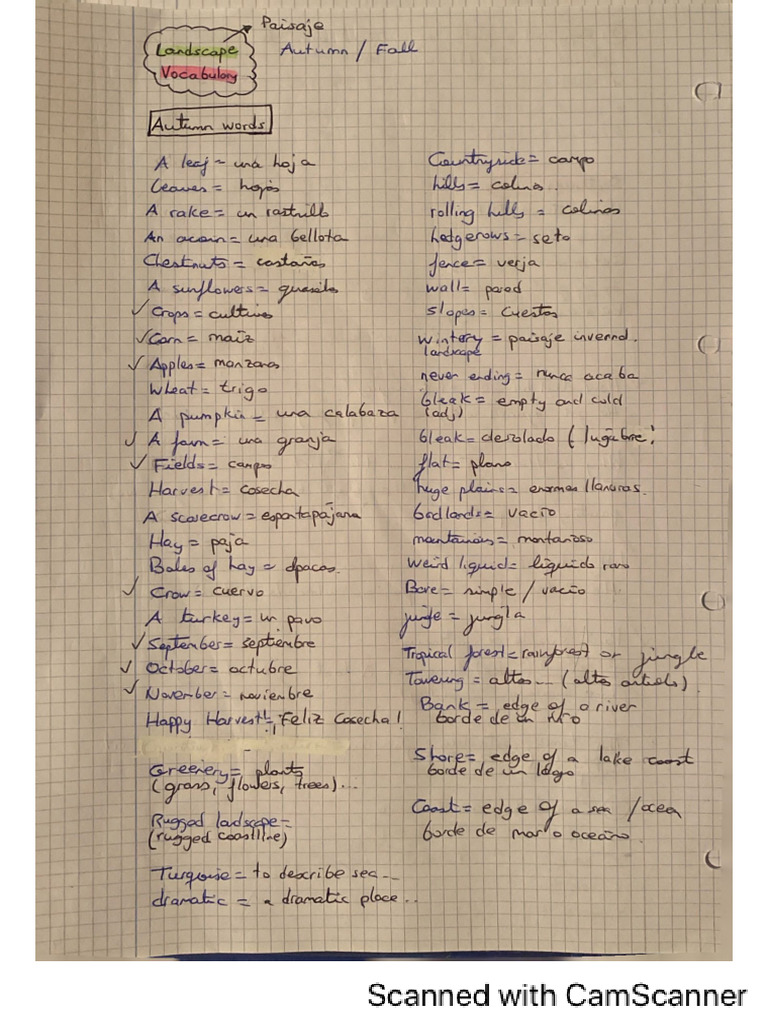 Paisaje
Landscape
Vocabulary
Autumn / Fall
Autumn words
A leaf = una hoja
Leaves = hojas
A rake = un rastrillo
An acorn = una bellota
Chestnuts = castañas
A sunflowers =
Crops = cultivo
Corn = maíz
Apples = manzanas
Wheat = trigo
A pumpkin = una calabaza
A farm = una granja
Fields = campo
Harvest = cosecha
A scarecrow = espantapájaros
Hay = paja
Bales of hay = dpacas.
Crow = cuervo
A turkey = un pavo
September = septiembre
October = octubre
November = noviembre
Happy Harvest! = ¡Feliz Cosecha!
Greenery = plants
(grass, flowers, trees)...
Rugged landscape =
(rugged coastline)
Turquoise = to describe sea...
dramatic = a dramatic place..
Countryside = campo
hills = colina.
rolling hills = colinas
hedgerows = seto
fence = verja
wall = pared
slopes = cuestas
wintery = paisaje invernal.
landscape
never ending = nunca acaba
bleak = empty and cold
(adj)
bleak = desolado (lúgubre)
flat = plano
huge plains = enormes llanuras.
badlands = vacío
mountainous = montañoso
Weird liquid = líquido raro
Bare = simple / vacío
jungle = jungla
Tropical forest = rainforest or jungle
Towering = altos... (altos árboles)
Bank = edge of a river
borde de un río
Shore = edge of a lake coast
borde de un lago
Coast = edge of a sea / ocean
borde de mar o océano.
Scanned with CamScanner